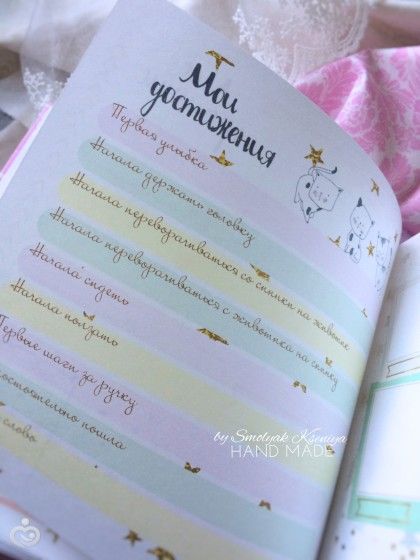 Мои
достижения
Первая улыбка
Начала держать головку
Начала переворачиваться со спинки на животик
Начала переворачиваться с животика на спинку
Начала сидеть
Начала ползать
Первые шаги за ручку
пошла
слово
by Smolyak Kseniya
HAND MADE